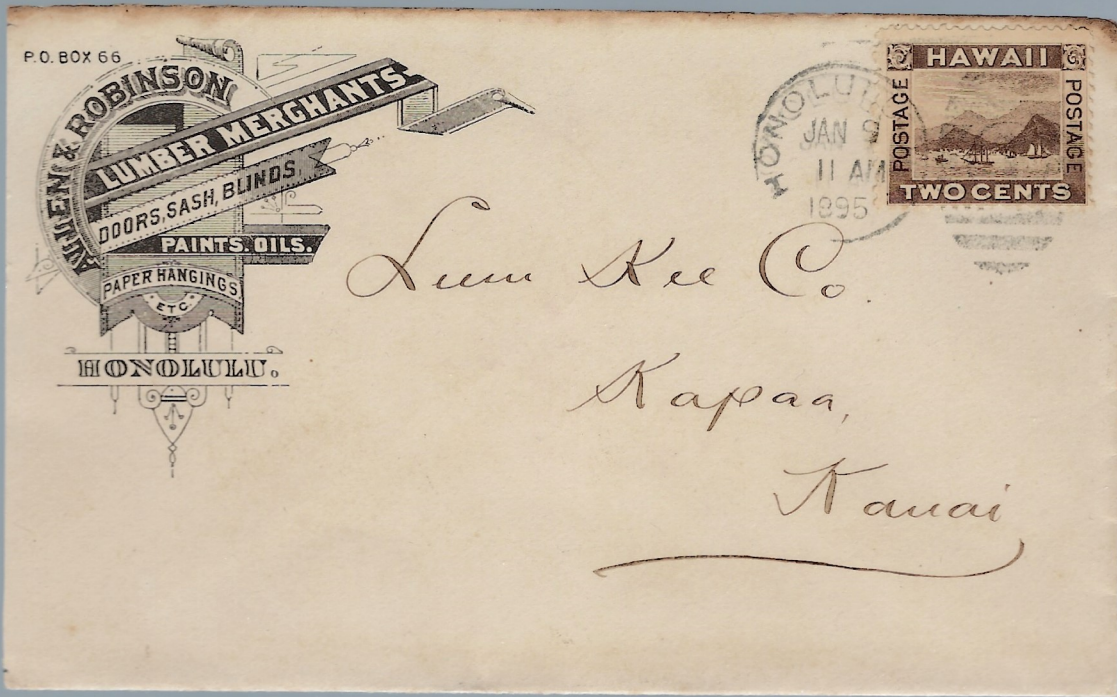 P.O. BOX 66
ALLEN & ROBINSON
LUMBER MERCHANTS
DOORS, SASH, BLINDS,
PAINTS. OILS.
PAPER HANGINGS
ETC
HONOLULU.
HONOLULU
JAN 9
11 AM
1895
HAWAII
POSTAGE
POSTAGE
TWO CENTS
Lum Kee Co.
Kapaa,
Kauai